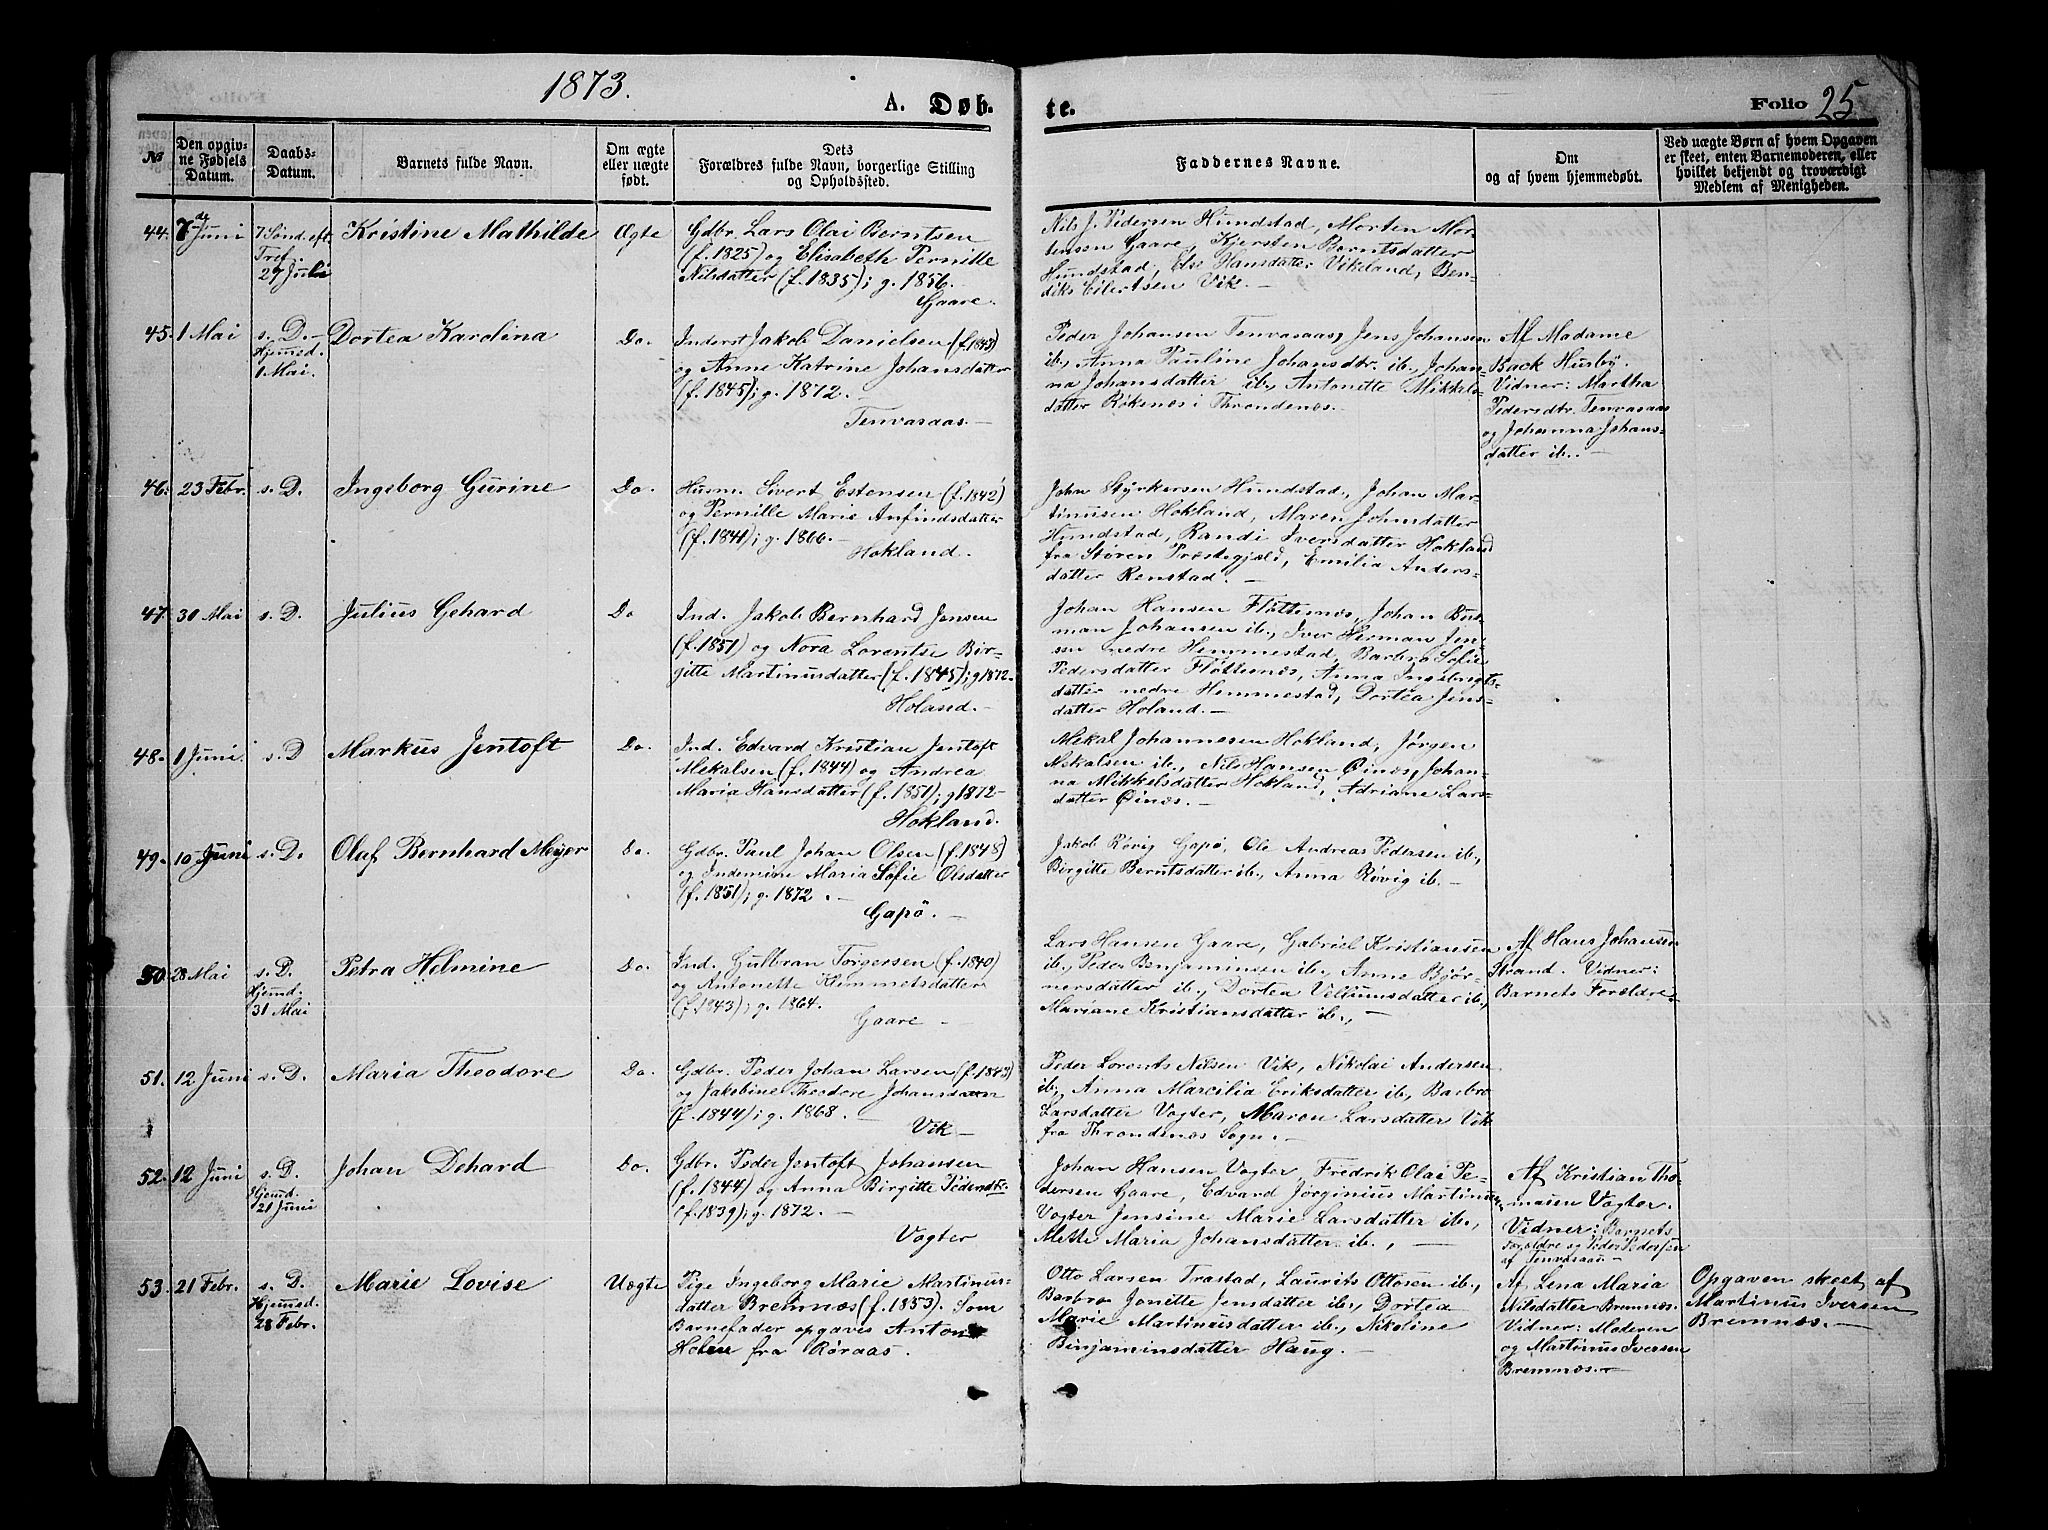 1873.
A. Døb-
te.
Folio 25
№
Den opgiv-
ne Fødsels
Datum.
Daabs-
Datum.
Barnets fulde Navn.
Om ægte
eller uægte
født.
Dets
Forældres fulde Navn, borgerlige Stilling
og Opholdssted.
Faddernes Navne.
Om
og af hvem hjemmedøbt.
Ved uægte Børn af hvem Opgaven
er skeet, enten Barnemoderen, eller
hvilket bekjendt og troværdigt
Medlem af Menigheden.
44.
7de Juni
7 Sønd. eft.
Tref.
27 Juli
Kristine Mathilde
Ægte
Gdbr. Lars Olai Berntsen
(f. 1825) og Elisabeth Pernille
Nilsdatter (f. 1835); g. 1856.
Gaare.
Nils J. Pedersen Hundstad, Morten Mor-
tensen Gaare, Kjersten Berntsdatter
Hundstad, Else Hansdatter Vikeland, Ben-
diks Eilertsen Vik. —
45.
1 Mai
s. D. —
Hjemd.
1 Mai.
Dortea Karolina
Do.
Inderst Jakob Danielsen (f. 1843)
og Anne Katrine Johansdatter
(f. 1845); g. 1872. —
Tenvasaas. —
Peder Johansen Tenvasaas, Jens Johansen
ib., Anna Pauline Johansdtr. ib., Johan-
na Johansdatter ib., Antonette Mikkels-
datter Røkenæs i Throndenæs. —
Af Madame
Back Husby.
Vidner: Martha
Pedersdtr. Tenvasaas
og Johanna Johans-
datter ib. —
46.
23 Febr.
s. D.
Ingeborg Gurine
Do.
Husm. Sivert Estensen (f. 1842)
og Pernille Marie Anfindsdatter
(f. 1841); g. 1866. —
Hokland.
John Styrkersen Hundstad, Johan Mar-
tinusen Hokland, Maren Johnsdatter
Hundstad, Randi Iversdatter Hokland
fra Støren Præstegjæld, Emilia Anders-
datter Renstad. —
47.
30 Mai
s. D.
Julius Gehard
Do
Ind. Jakob Bernhard Jensen
(f. 1851) og Nora Lorentse Bir-
gitte Martinusdatter (f. 1845); g 1872.
Holand. —
Johan Hansen Fløttenæs, Johan
man Johansen ib., Iver Herman Jen-
sen nedre Hemmestad, Barbro Sofie
Pedersdatter Fløttenæs, Anna Ingebrigts-
datter nedre Hemmestad, Dortea Jens-
datter Holand. —
48.
1 Juni.
s. D
Markus Jentoft
Do.
Ind. Edvard Kristian Jentoft
Mekalsen (f. 1844) og Andrea
Maria Hansdatter (f. 1851); g 1872 —
Hokland.
Mekal Johannesen Hokland, Jørgen
Mekalsen ib., Nils Hansen Øinæs, Johan-
na Mikkelsdatter Hokland, Adriane Lars-
datter Øinæs. —
49.
10 Juni
s. D.
Olaf Bernhard Meyer
Do.
Gdbr. Paul Johan Olsen (f. 1848)
og Indemine Maria Sofie Olsdatter
(f. 1851); g. 1872. —
Gapø. —
Jakob Røvig Gapø, Ole Andreas Pedersen ib.,
Birgitte Berntsdatter ib., Anna Røvig ib. —
50.
28 Mai
s. D.
Hjemd.
31 Mai
Petra Helmine
Do.
Ind. Gulbran Torgersen (f. 1840)
og Antonette Klemmetsdatter
(f. 1843); g. 1864.
Gaare —
Lars Hansen Gaare, Gabriel Kristiansen
ib., Peder Benjaminsen ib., Anne Bjør-
nersdatter ib., Dortea Vellumsdatter ib.,
Mariane Kristiansdatter ib., —
Af Hans Johansen
Strand. Vidner:
Barnets Forældre.
51.
12 Juni
s. D.
Maria Theodore
Do.
Gdbr. Peder Johan Larsen (f. 1843)
og Jakobine Theodore Johansdatter
(f. 1844); g. 1868. —
Vik —
Peder Lorents Nilsen Vik, Nikolai Andersen
ib., Anna Marcilia Eriksdatter ib., Barbro
Larsdatter Vogter, Maren Larsdatter Vik
fra Throndenæs Sogn. —
52.
12 Juni
s. D.
Hjemd.
21 Juni
Johan Dehard
Do.
Gdbr. Peder Jentoft Johansen
(f. 1844) og Anna Birgitte Pedersdtr.
(f. 1839); g. 1872. —
Vogter
Johan Hansen Vogter, Fredrik Olai Pe-
dersen Gaare, Edvard Jørginius Martinusen
Vogter Jensine Marie Larsdatter ib.,
Mette Maria Johansdatter ib., —
Af Kristian Tho-
masen Vogter.
Vidner: Barnets
Forældre og Peder Pedersen
af Tenvasaas —
53.
21 Febr.
s. D.
Hjemd.
28 Febr.
Marie Lovise
Uægte
Pige Ingeborg Marie Martinus-
datter Bremnæs (f. 1853). Som
Barnefader opgaves Anton
Holen fra Røraas.
Otto Larsen Trastad, Laurits Ottosen ib.,
Barbro Jonette Jensdatter ib., Dortea
Marie Martinusdatter ib., Nikoline
Binjaminsdatter Haug. —
Af Lena Maria
Nilsdatter Bremnæs.
Vidner: Moderen
og Martinus Iversen
Bremnæs. —
Opgaven skeet af
Martinus Iversen
Bremnæs. —